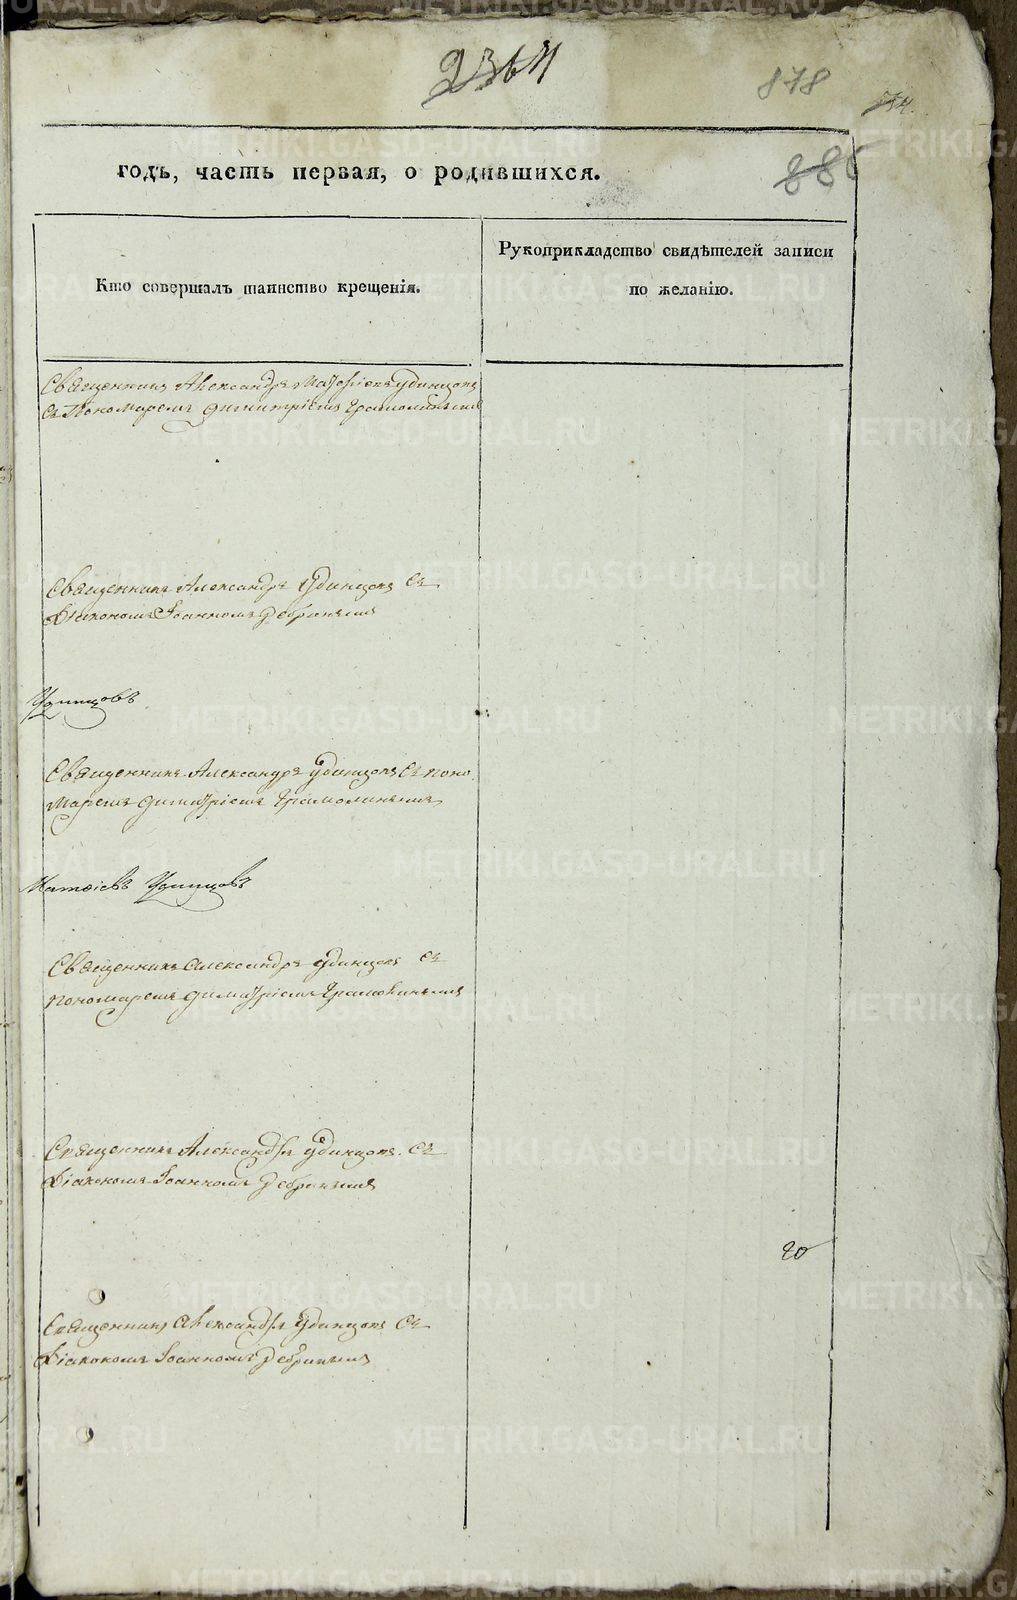 878
годъ, часть первая, о родившихся.
Кто совершалъ таинство крещенія.
Рукоприкладство свидѣтелей записи
по желанію.
Священникъ Александръ Матѳіевъ Удинцовъ
съ Пономаремъ Димитріемъ
Священникъ Александръ Удинцовъ съ
Діакономъ Іоанномъ
Удинцовъ
Священникъ Александръ Удинцовъ съ поно
маремъ Димитріемъ
Матѳіевъ Удинцовъ
Священникъ Александръ Удинцовъ съ
пономаремъ Димитріемъ
Священникъ Александръ Удинцовъ съ
Діакономъ Іоанномъ
20
Священникъ Александръ Удинцовъ съ
Діакономъ Іоанномъ
METRIKI.GASO-URAL.RU